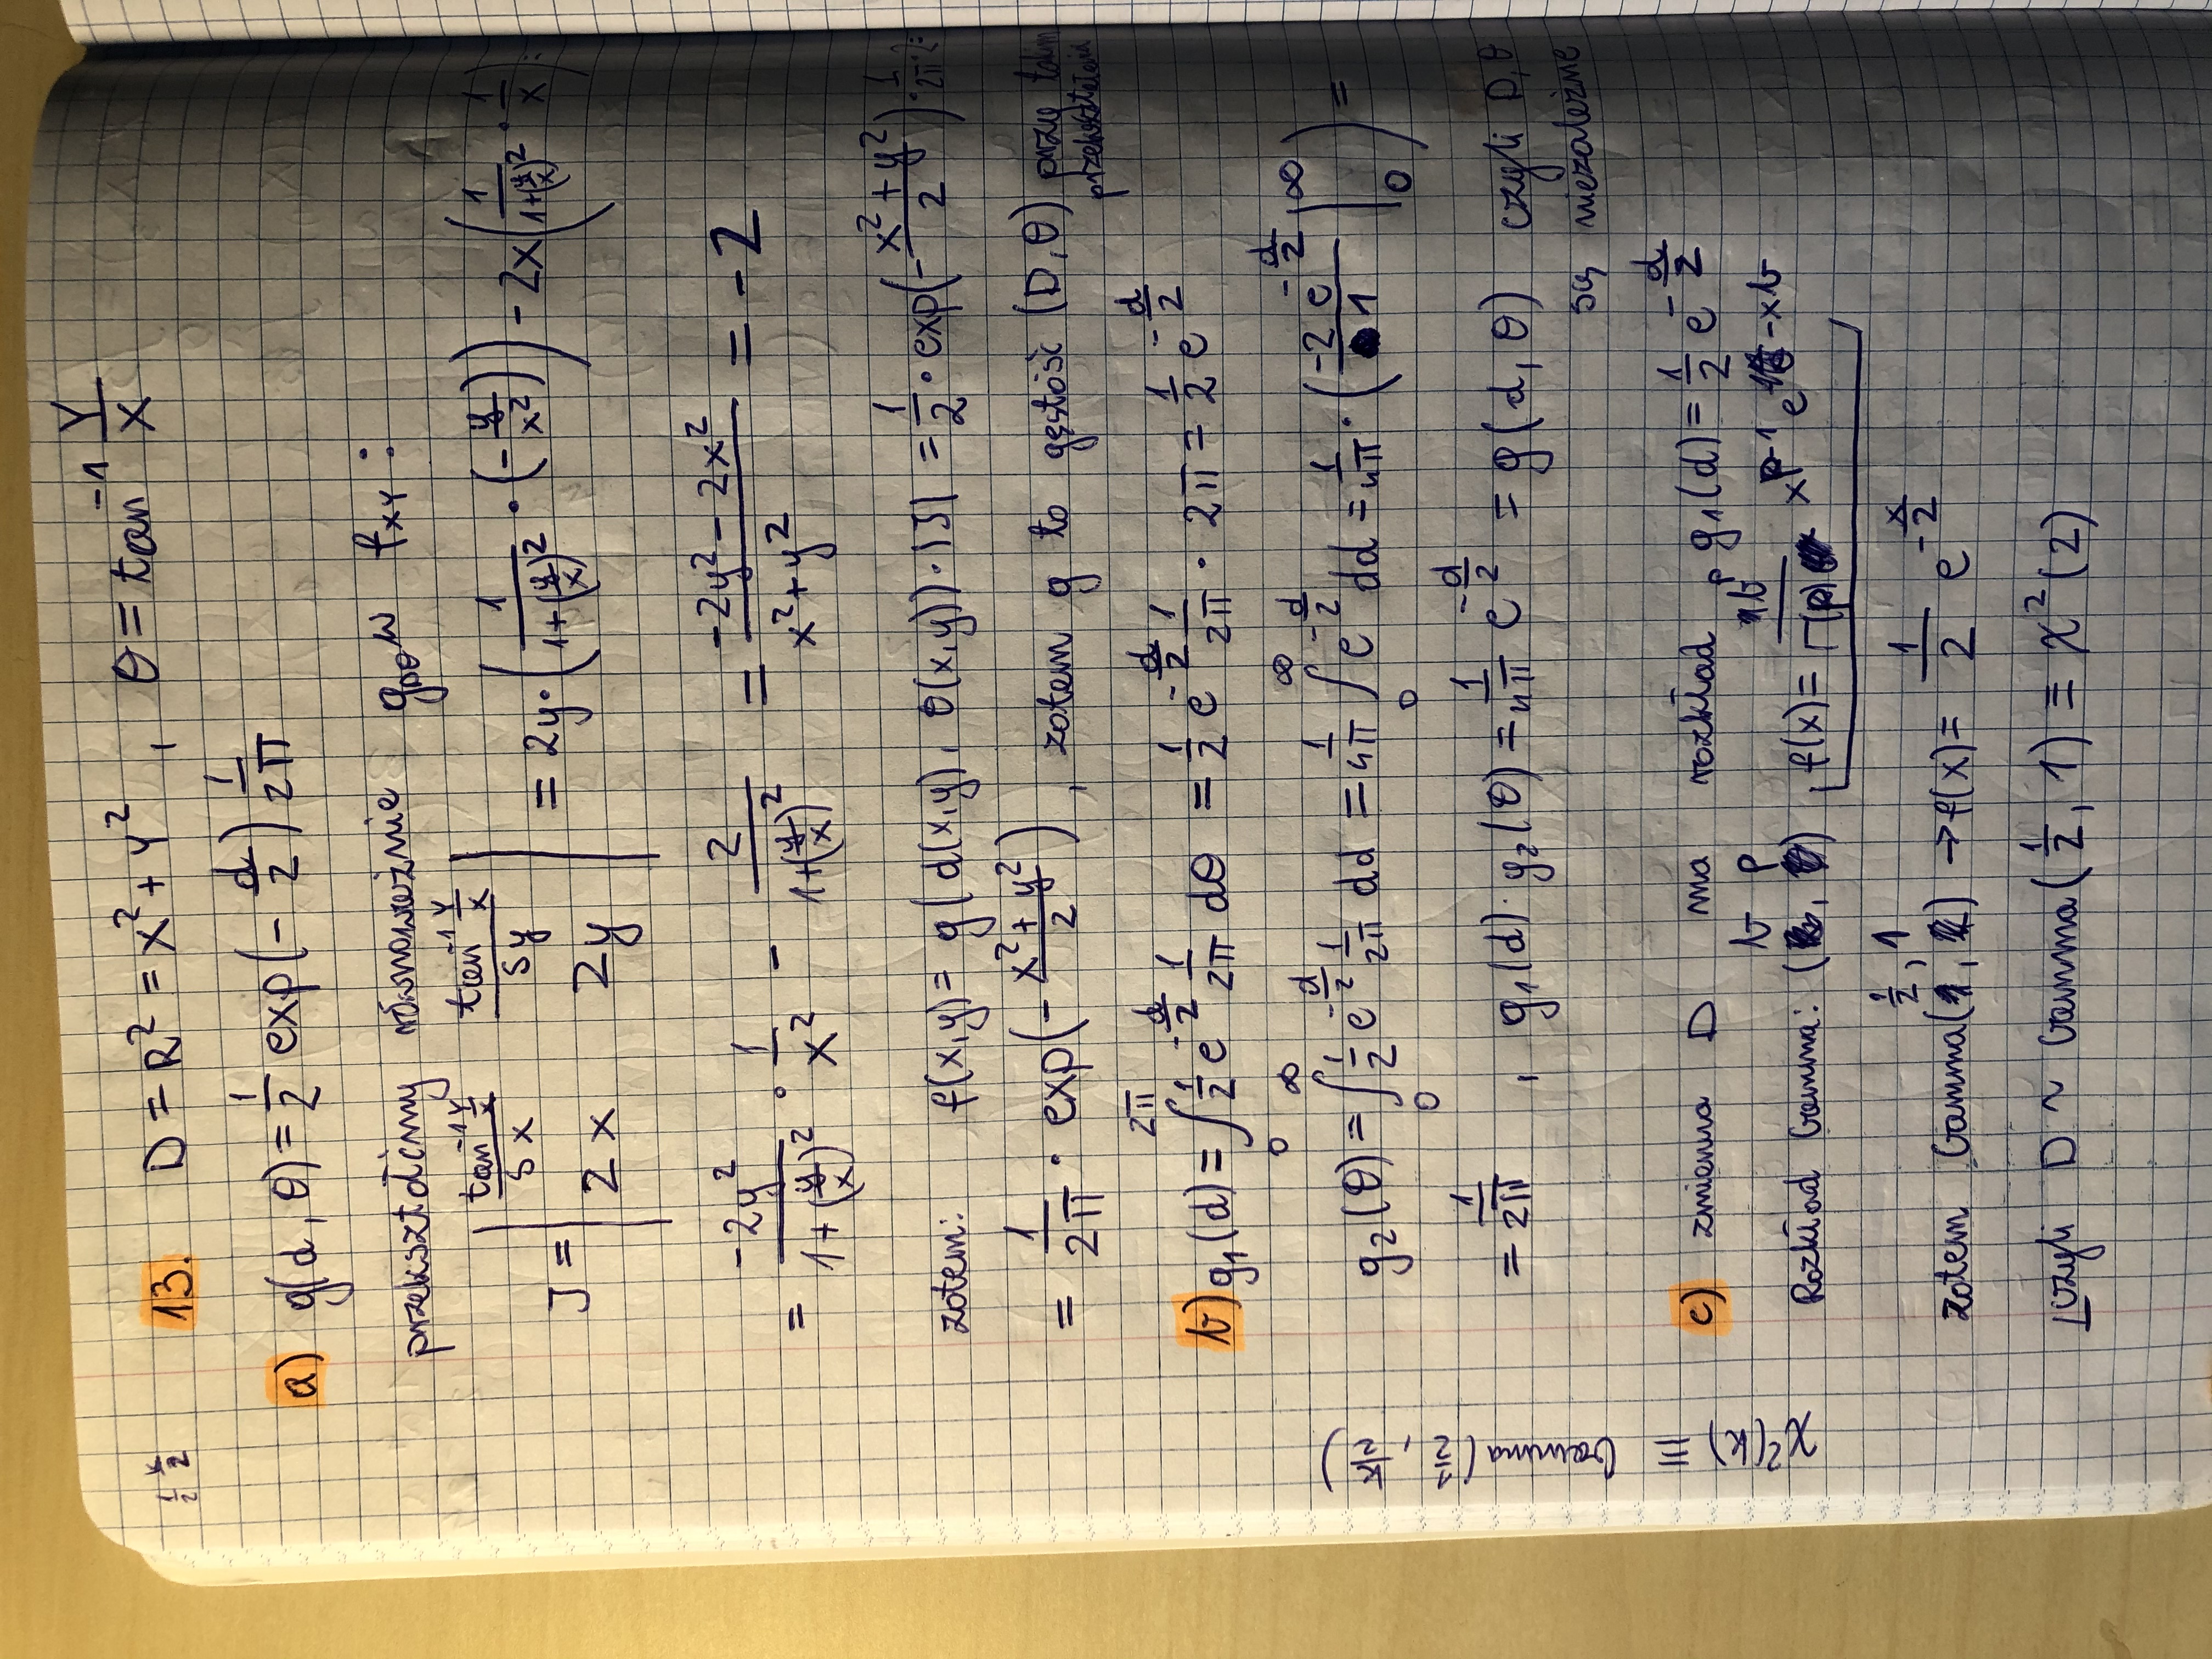 1/2 k/2
13. D = R² = X² + Y² , θ = tan⁻¹ Y/X
a) g(d, θ) = 1/2 exp(- d/2) 1/2π
przekształćmy równoważnie g_Dθ w f_XY :
J = | tan⁻¹ Y/X / δx   tan⁻¹ Y/X / δy ; 2x   2y | = 2y · (1/(1+(y/x)²) · (- y/x²)) - 2x (1/(1+(y/x)²) · 1/x) =
= -2y²/(1+(y/x)²) · 1/x² - 2/(1+(y/x)²) = (-2y² - 2x²)/(x² + y²) = -2
zatem: f(x,y) = g(d(x,y), θ(x,y)) · |J| = 1/2 · exp(- (x² + y²)/2) · 1/2π · 2 =
= 1/2π · exp(- (x² + y²)/2) , zatem g to gęstość (D, θ) przy takim
b) g₁(d) = ∫₀^2π 1/2 e^(-d/2) 1/2π dθ = 1/2 e^(-d/2) 1/2π · 2π = 1/2 e^(-d/2)
g₂(θ) = ∫₀^∞ 1/2 e^(-d/2) 1/2π dd = 1/4π ∫₀^∞ e^(-d/2) dd = 1/4π · (-2 e^(-d/2) / 1 |₀^∞) =
= 1/2π , g₁(d) · g₂(θ) = 1/4π e^(-d/2) = g(d, θ) czyli D, θ
są niezależne
c) zmienna D ma rozkład g₁(d) = 1/2 e^(-d/2)
Rozkład Gamma: (b, p) , f(x) = b^p/Γ(p) x^(p-1) e^(-xb)
zatem Gamma(1/2, 1) → f(x) = 1/2 e^(-x/2)
czyli D ~ Gamma(1/2, 1) ≡ χ²(2)
χ²(k) ≡ Gamma(1/2, k/2)